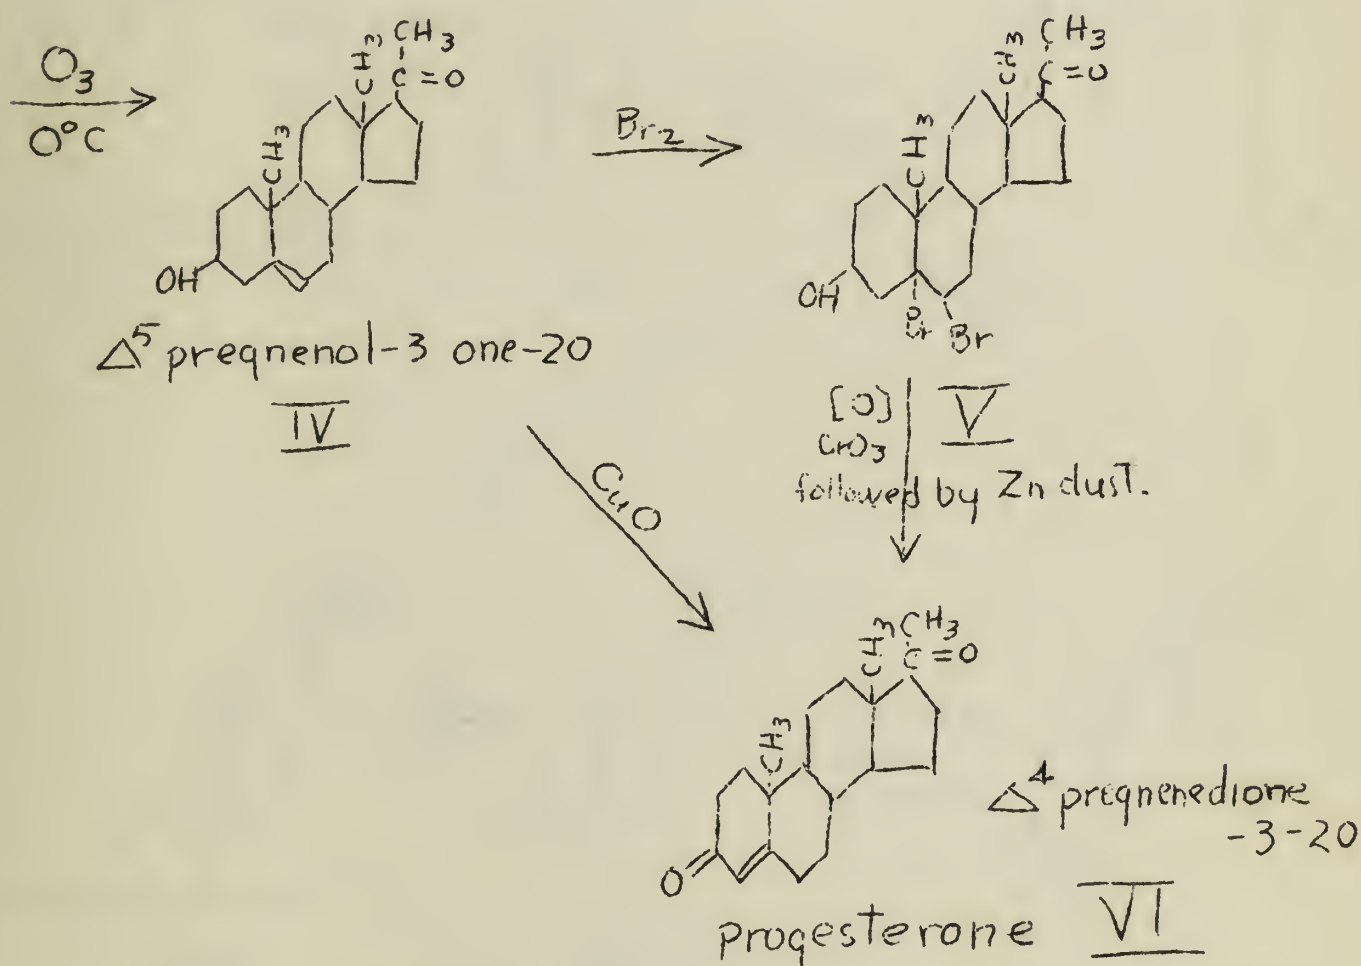 O₃
0°C
CH₃
CH₃
C=O
CH₃
OH
Δ⁵ pregnenol-3 one-20
IV
Br₂
CH₃
CH₃
C=O
CH₃
OH
Br
Br
[O]
CrO₃
followed by Zn dust.
V
CuO
CH₃
CH₃
C=O
CH₃
O
Δ⁴ pregnenedione
-3-20
progesterone VI